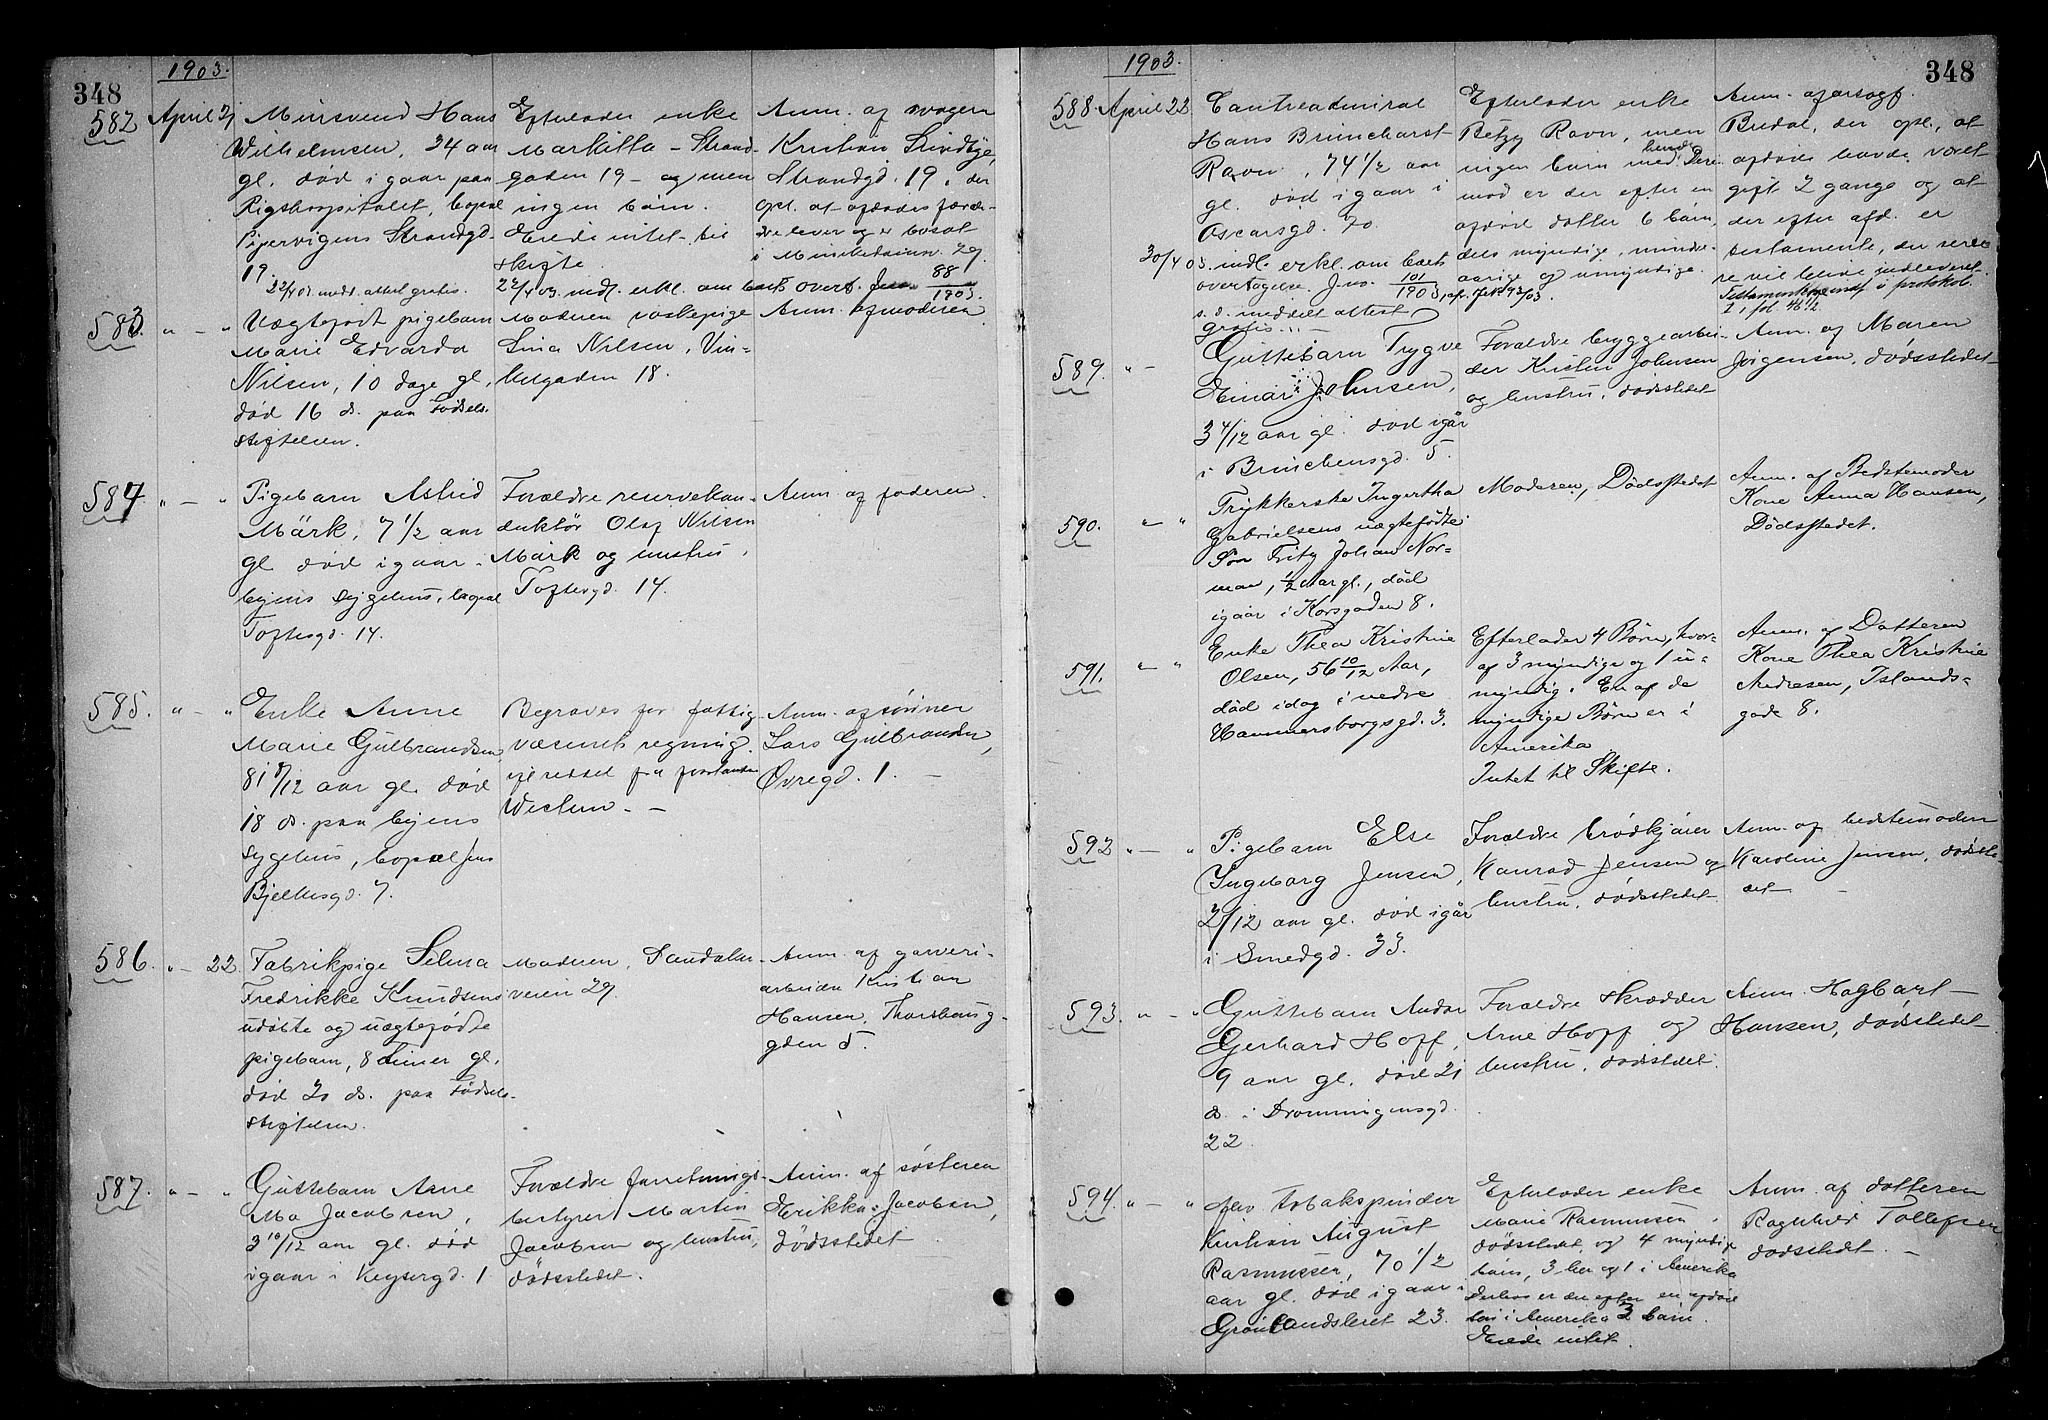 1903.
348
582 April 21 Murersvend Hans
Wilhelmsen, 24 aar
gl. død igaar paa
Rigshospitalet, bopæl
Pipervigens Strandgd.
19.
22/4 03 medd. attest gratis.
Efterlader enke
Markitta - Strand-
gaden 19 - og men
ingen børn.
Eiede intet til
skifte
22/4 03 indl. erkl. om boets overt. Jno. 88/1903.
Anm. af svogeren
Kristian
Strandgd. 19, der
opl. at afdødes foræl-
dre lever og er bosat
i 29.
583. " - " Uægtefødt pigebarn
Marie Edvarda
Nilsen, 10 dage gl.,
død 16 ds. paa Fødsels-
stiftelsen.
Moderen vaskepige
Lina Nilsen, Vin-
kelgaden 18.
Anm. af moderen
584. " - " Pigebarn Astrid
Märk, 7 1/2 aar
gl. død igaar
byens sygehus, bopæl
Toftesgd. 14.
Forældre reservekon-
duktør Olaf Nilsen
Märk og hustru,
Toftesgd. 14.
Anm. af faderen.
585. " - " Enke Anne
Marie Gulbrandsen,
81 8/12 aar gl. død
18 ds. paa byens
sygehus, bopæl Jens
Bjelkesgd. 7.
Begraves for fattig-
væsenets regning
efter seddel fra forstander
Anm. af sønnen
Lars Gulbrandsen,
Øvregd. 1. -
586. " - 22. Fabrikpige Selma
Fredrikke Knudsens
udøbte og uægtefødte
pigebarn, 8 timer gl.
død 20 ds. paa Fødsels-
stiftelsen.
Moderen, Sandaker-
veien 29.
Anm. af garveri-
arbeider Kristian
Hansen, Thorshaug-
gden 5.
587. " - " Guttebarn Arne
Mo Jacobsen,
3 10/12 aar gl. død
igaar i Keysersgd. 1
Forældre forretnings-
bestyrer Martin
Jacobsen og hustru,
dødsstedet.
Anm. af søsteren
Erikka Jacobsen,
dødsstedet
1903.
348
588 April 22 Contreadmiral
Hans
Ravn, 74 1/2 aar
gl. død igaar i
Oscarsgd. 70.
30/4 03. indl. erkl. om boets
overtagelse. Jno. 101/1903,
s. d. meddelt attest
gratis.
Efterlader enke
Betzy Ravn, men
ingen barn med hende. Der-
imod er der efter en
afdød datter 6 børn,
dels myndige, mindre-
aarige og umyndige.
Anm. af
Bredal, der opl., at
afdøde havde været
gift 2 gange og at
der efter afd. er
testamente, der sene-
re vil blive indleveret.
Testamentet indf. i protokol
I, fol. 46 1/2.
589. " - Guttebarn Trygve
Einar Johnsen,
3 4/12 aar gl. død igår
i Brinchensgd. 5.
Forældre bryggearbei-
der Kristen Johnsen
og hustru, dødsstedet
Anm. af Maren
Jørgensen, dødsstedet
590. " - " Trykkerske Ingertha
Gabrielsens uægtefødte
Søn Fritz Johan Nor-
man, 1/2 Aar gl., død
igaar i Korsgaden 8.
Moderen, Dødsstedet
Anm. af Bedstemoder
Kone Anna Hansen,
Dødsstedet.
591. " - " Enke Thea Kristine
Olsen, 56 10/12 Aar,
død idag i nedre
Hammersborgsgd. 3.
Efterlader 4 Børn, hvor-
af 3 myndige og 1 u-
myndig. En af de
myndige Børn er i
Amerika
Intet til Skifte.
Anm. af Datteren
Kone Thea Kristine
Andresen, Islands-
gade 8.
592 " - " Pigebarn Else
Ingeborg Jensen,
2/12 aar gl. død igår
i Smedgd. 33.
Forældre brødkjører
Konrad Jensen og
hustru, dødsstedet
Anm. af bedstemoderen
Karoline Jensen, dødsste-
det -
593. " - " Guttebarn
Gerhard Hoff,
9 aar gl. død 21
ds. i Dronningensgd.
22
Forældre skrædder
Arne Hoff og
hustru, dødsstedet.
Anm. Hagbart
Hansen, dødsstedet
594. " - " Tobakspinder
Kristian August
Rasmussen, 70 1/2
aar gl. død igaar i
Grønlandsleret 23.
Efterlader enke
Marie Rasmussen,
dødsstedet, og 4 myndige
børn, 3 her og 1 i Amerika
Derhos er der efter en afdød
søn i Amerika 3 børn.
Eiede intet.
Anm. af datteren
Ragnhild Tollefsen
dødsstedet. -